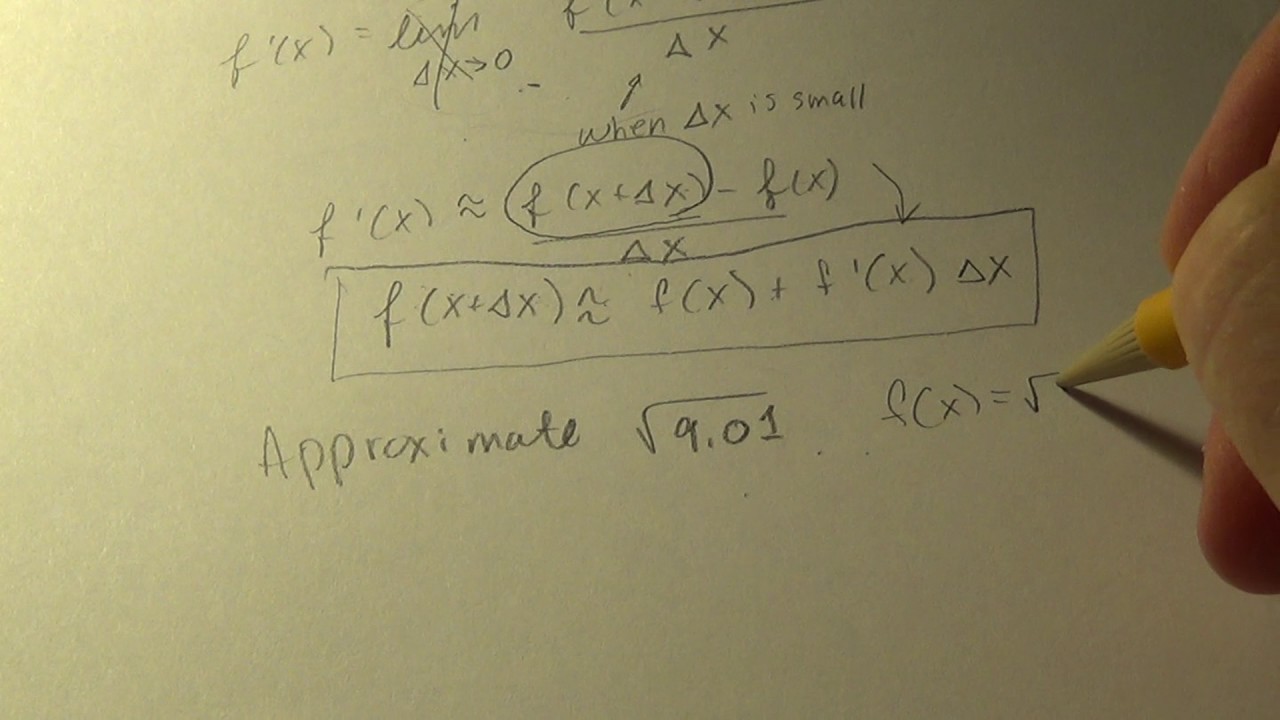 f'(x) = lim f(x
Δx→0 Δx
when Δx is small
f'(x) ≈ f(x+Δx) - f(x)
Δx
f(x+Δx) ≈ f(x) + f'(x) Δx
Approximate √9.01 f(x) = √